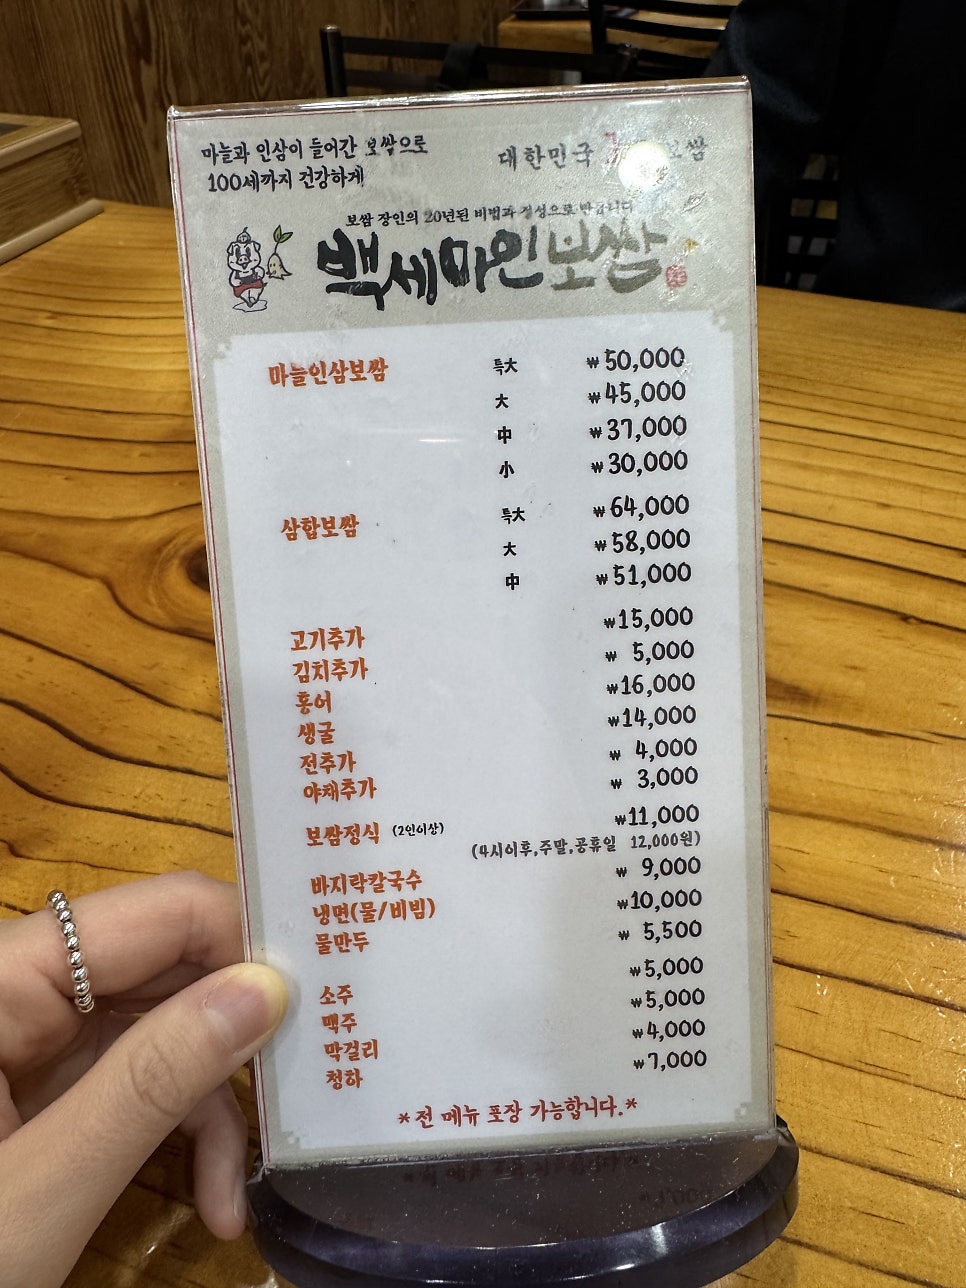 마늘과 인삼이 들어간 보쌈으로
100세까지 건강하게
대한민국 보쌈
보쌈 장인의 20년된 비법과 정성으로 만듭니다
백세마인보쌈
마늘인삼보쌈 특大 ₩50,000
大 ₩45,000
中 ₩37,000
小 ₩30,000
삼합보쌈 특大 ₩64,000
大 ₩58,000
中 ₩51,000
고기추가 ₩15,000
김치추가 ₩ 5,000
홍어 ₩16,000
생굴 ₩14,000
전추가 ₩ 4,000
야채추가 ₩ 3,000
보쌈정식 (2인이상) ₩11,000
(4시이후,주말,공휴일 12,000원)
바지락칼국수 ₩ 9,000
냉면(물/비빔) ₩10,000
물만두 ₩ 5,500
소주 ₩5,000
맥주 ₩5,000
막걸리 ₩4,000
청하 ₩7,000
*전 메뉴 포장 가능합니다.*